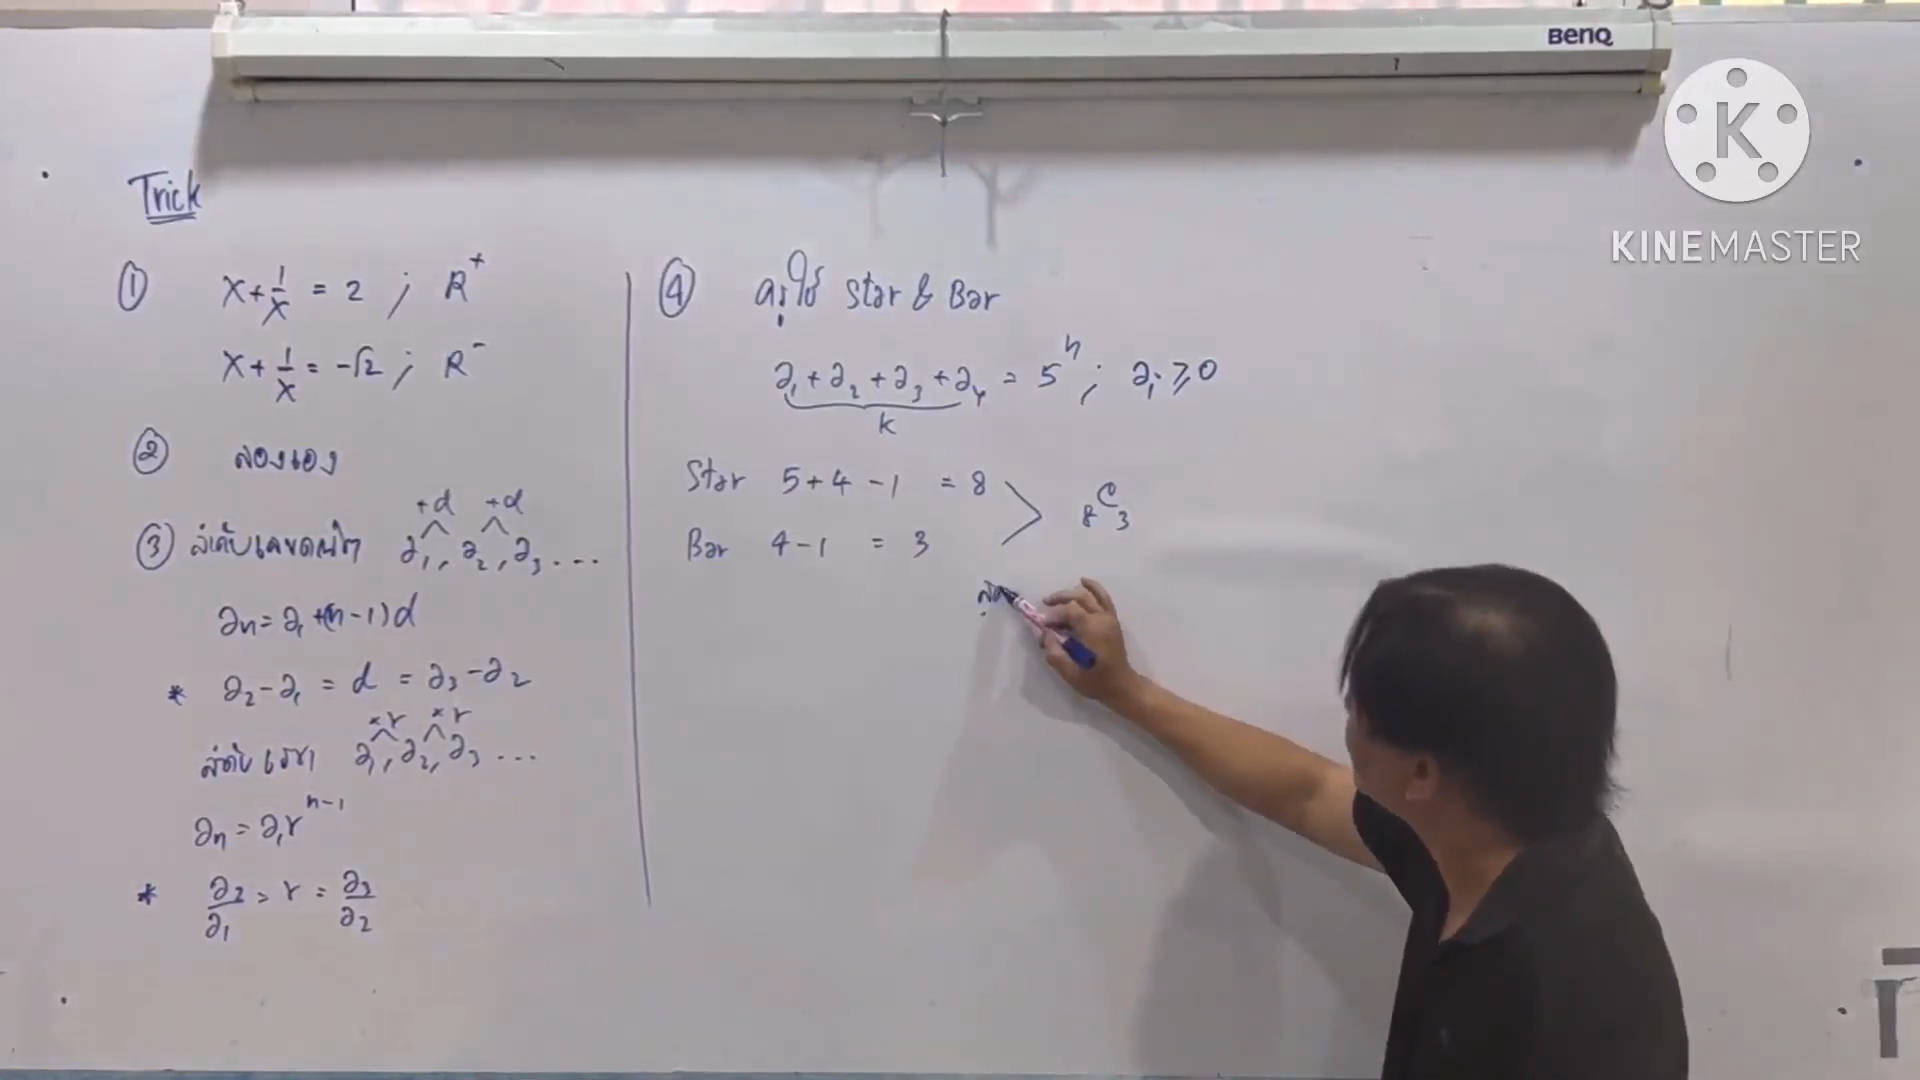 BenQ
KINEMASTER
Trick
① x + 1/x = 2 ; R⁺
x + 1/x = -√2 ; R⁻
② ลองเอง
③ ลำดับเลขคณิต a₁, a₂, a₃ ...
+d +d
aₙ = a₁ + (n-1)d
* a₂ - a₁ = d = a₃ - a₂
ลำดับเรขา a₁, a₂, a₃ ...
×r ×r
aₙ = a₁rⁿ⁻¹
* a₂/a₁ = r = a₃/a₂
④ ใช้ Star & Bar
a₁ + a₂ + a₃ + a₄ = 5 n ; aᵢ ≥ 0
k
Star 5 + 4 - 1 = 8
₈C₃
Bar 4 - 1 = 3